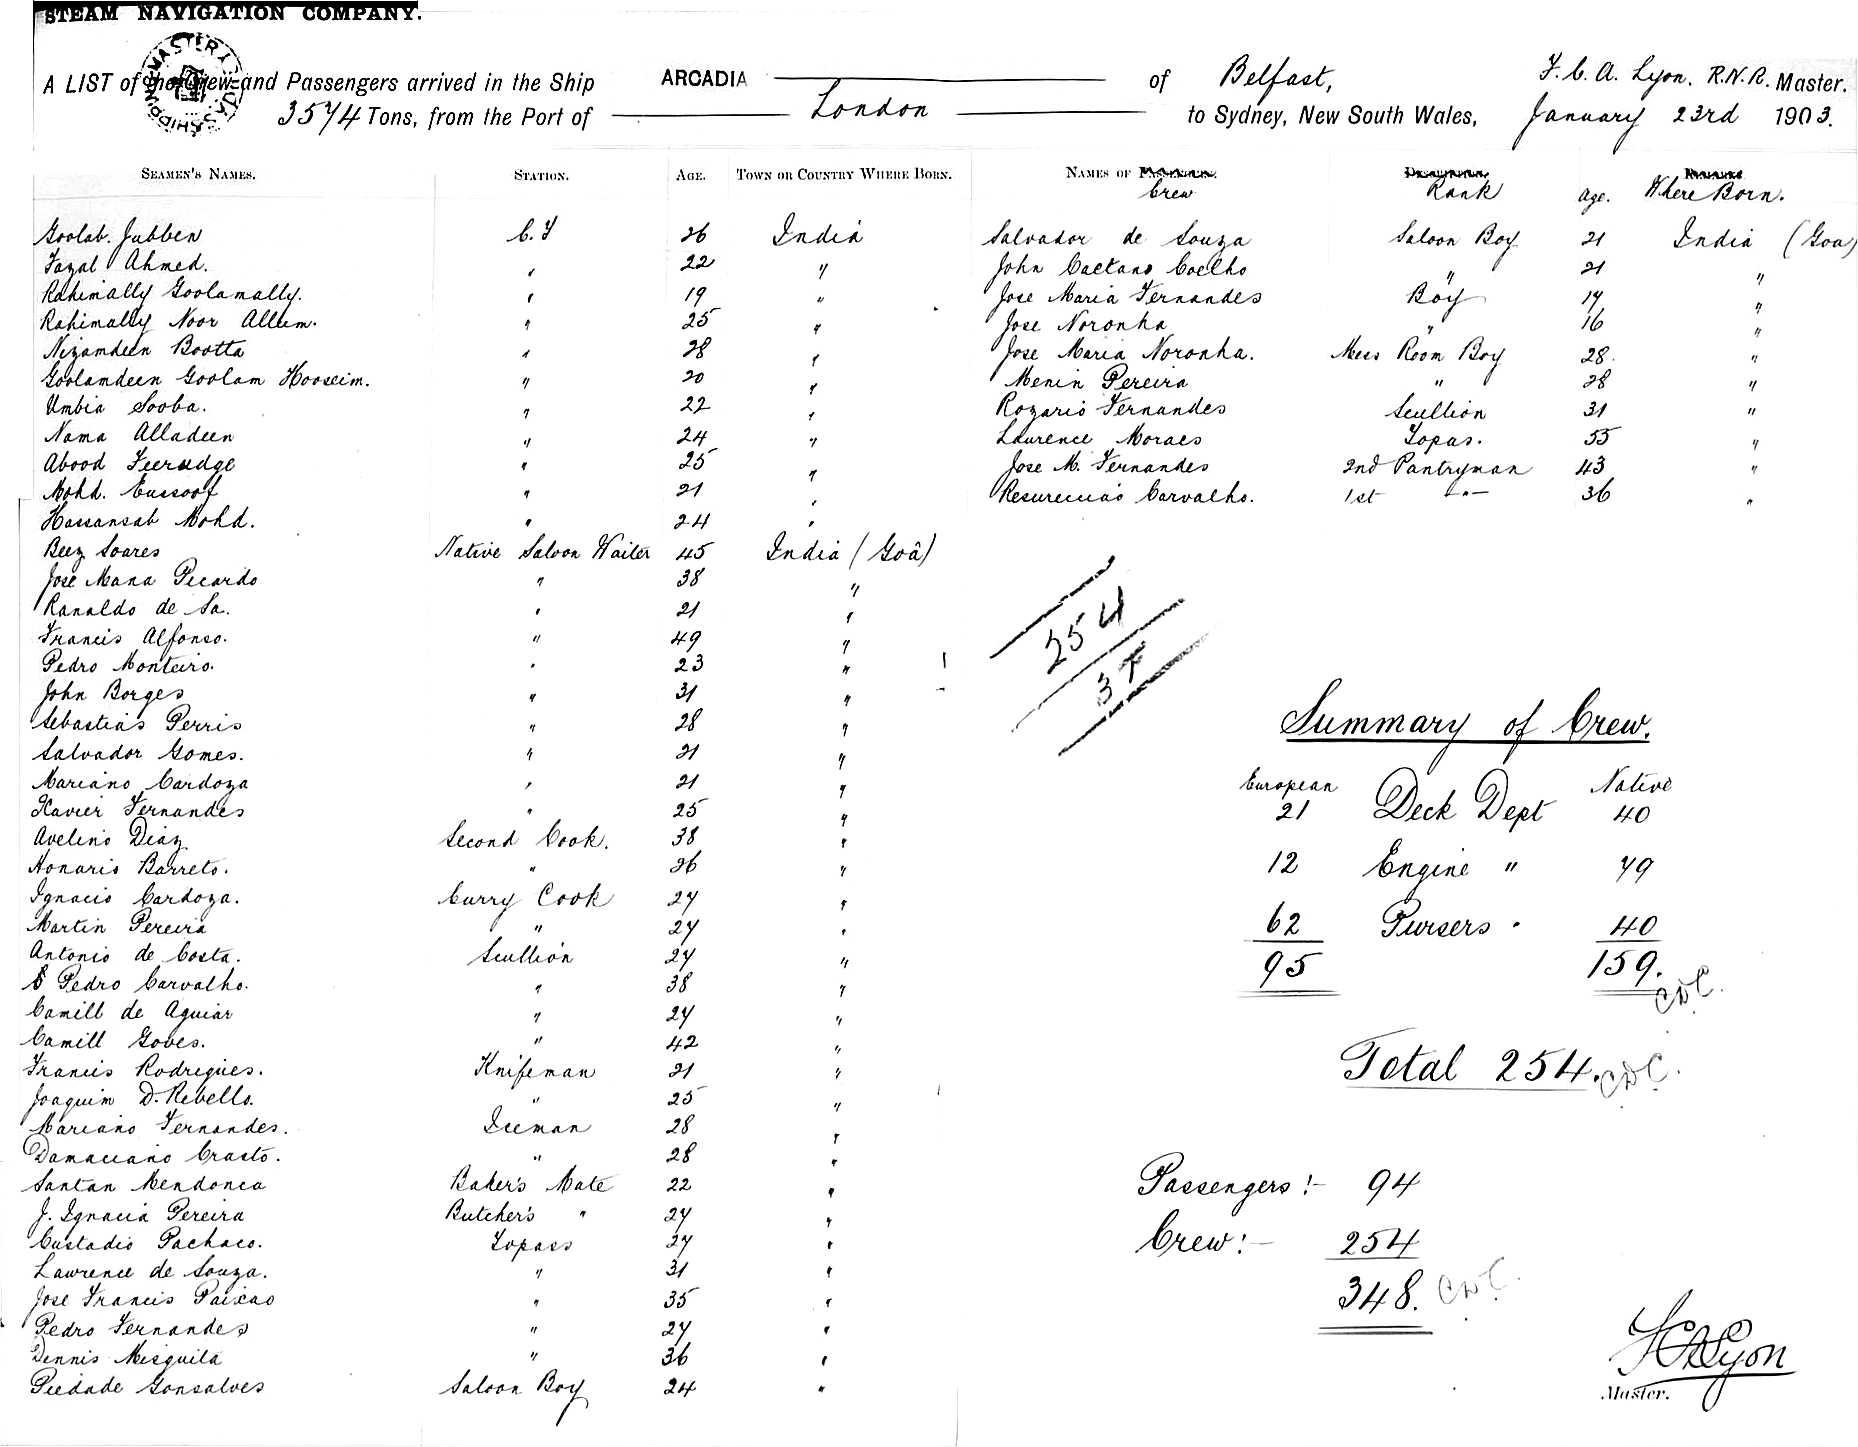 STEAM NAVIGATION COMPANY.
A LIST of the Crew and Passengers arrived in the Ship ARCADIA of Belfast, F. C. A. Lyon. R.N.R. Master.
3574 Tons, from the Port of London to Sydney, New South Wales, January 23rd 1903.
SEAMEN'S NAMES. STATION. AGE. TOWN OR COUNTRY WHERE BORN.
Goolab. Jubben C.T 26 India
Fazal Ahmed. " 22 "
Rahimally Goolamally. " 19 "
Rahimally Noor Allum. " 25 "
Nizamdeen Bootta " 28 "
Goolamdeen Goolam Hooseim. " 20 "
Umbia Sooba. " 22 "
Nama Alladeen " 24 "
Abood Feerudge " 25 "
Mohd. Eussoof " 21 "
Hassansab Mohd. " 24 "
Beez Soares Native Saloon Waiter 45 India (Goa)
Jose Maria Picardo " 38 "
Ranaldo de Sa. " 21 "
Francis Alfonso. " 49 "
Pedro Monteiro. " 23 "
John Borges " 31 "
Sebastias Perris " 28 "
Salvador Gomes. " 21 "
Mariano Cardoza " 21 "
Xavier Fernandes " 25 "
Avelino Diaz Second Cook. 38 "
Honario Barreto. " 26 "
Ignacio Cardoza. Curry Cook 27 "
Martin Pereira " 27 "
Antonio de Costa. Scullion 27 "
Pedro Carvalho. " 38 "
Camill de Aguiar " 27 "
Camill Goves. " 42 "
Francis Rodrigues. Knifeman 21 "
Joaquim D. Rebello. " 25 "
Mariano Fernandes. Iceman 28 "
Damaciano Crasto. " 28 "
Santan Mendonca Baker's Mate 22 "
J. Ignacia Pereira Butcher's " 27 "
Custadio Pachaco. Topass 27 "
Lawrence de Souza. " 31 "
Jose Francis Paixao " 35 "
Pedro Fernandes " 27 "
Dennis Misquita " 36 "
Piedade Gonsalves Saloon Boy 24 "
NAMES OF Crew Rank Age. Where Born.
Salvador de Souza Saloon Boy 21 India (Goa)
John Caetano Coelho " 21 "
Jose Maria Fernandes Boy 17 "
Jose Noronha " 16 "
Jose Maria Noronha. Mess Room Boy 28. "
Menin Pereira " 28 "
Rozario Fernandes Scullion 31 "
Laurence Moraes Topas. 55 "
Jose M. Fernandes 2nd Pantryman 43 "
Resureccao Carvalho. 1st -"- 36 "
254
37
Summary of Crew.
European Native
21 Deck Dept 40
12 Engine " 79
62 Pursers " 40
95 159.
Total 254.
Passengers :- 94
Crew :- 254
348.
FCALyon
Master.